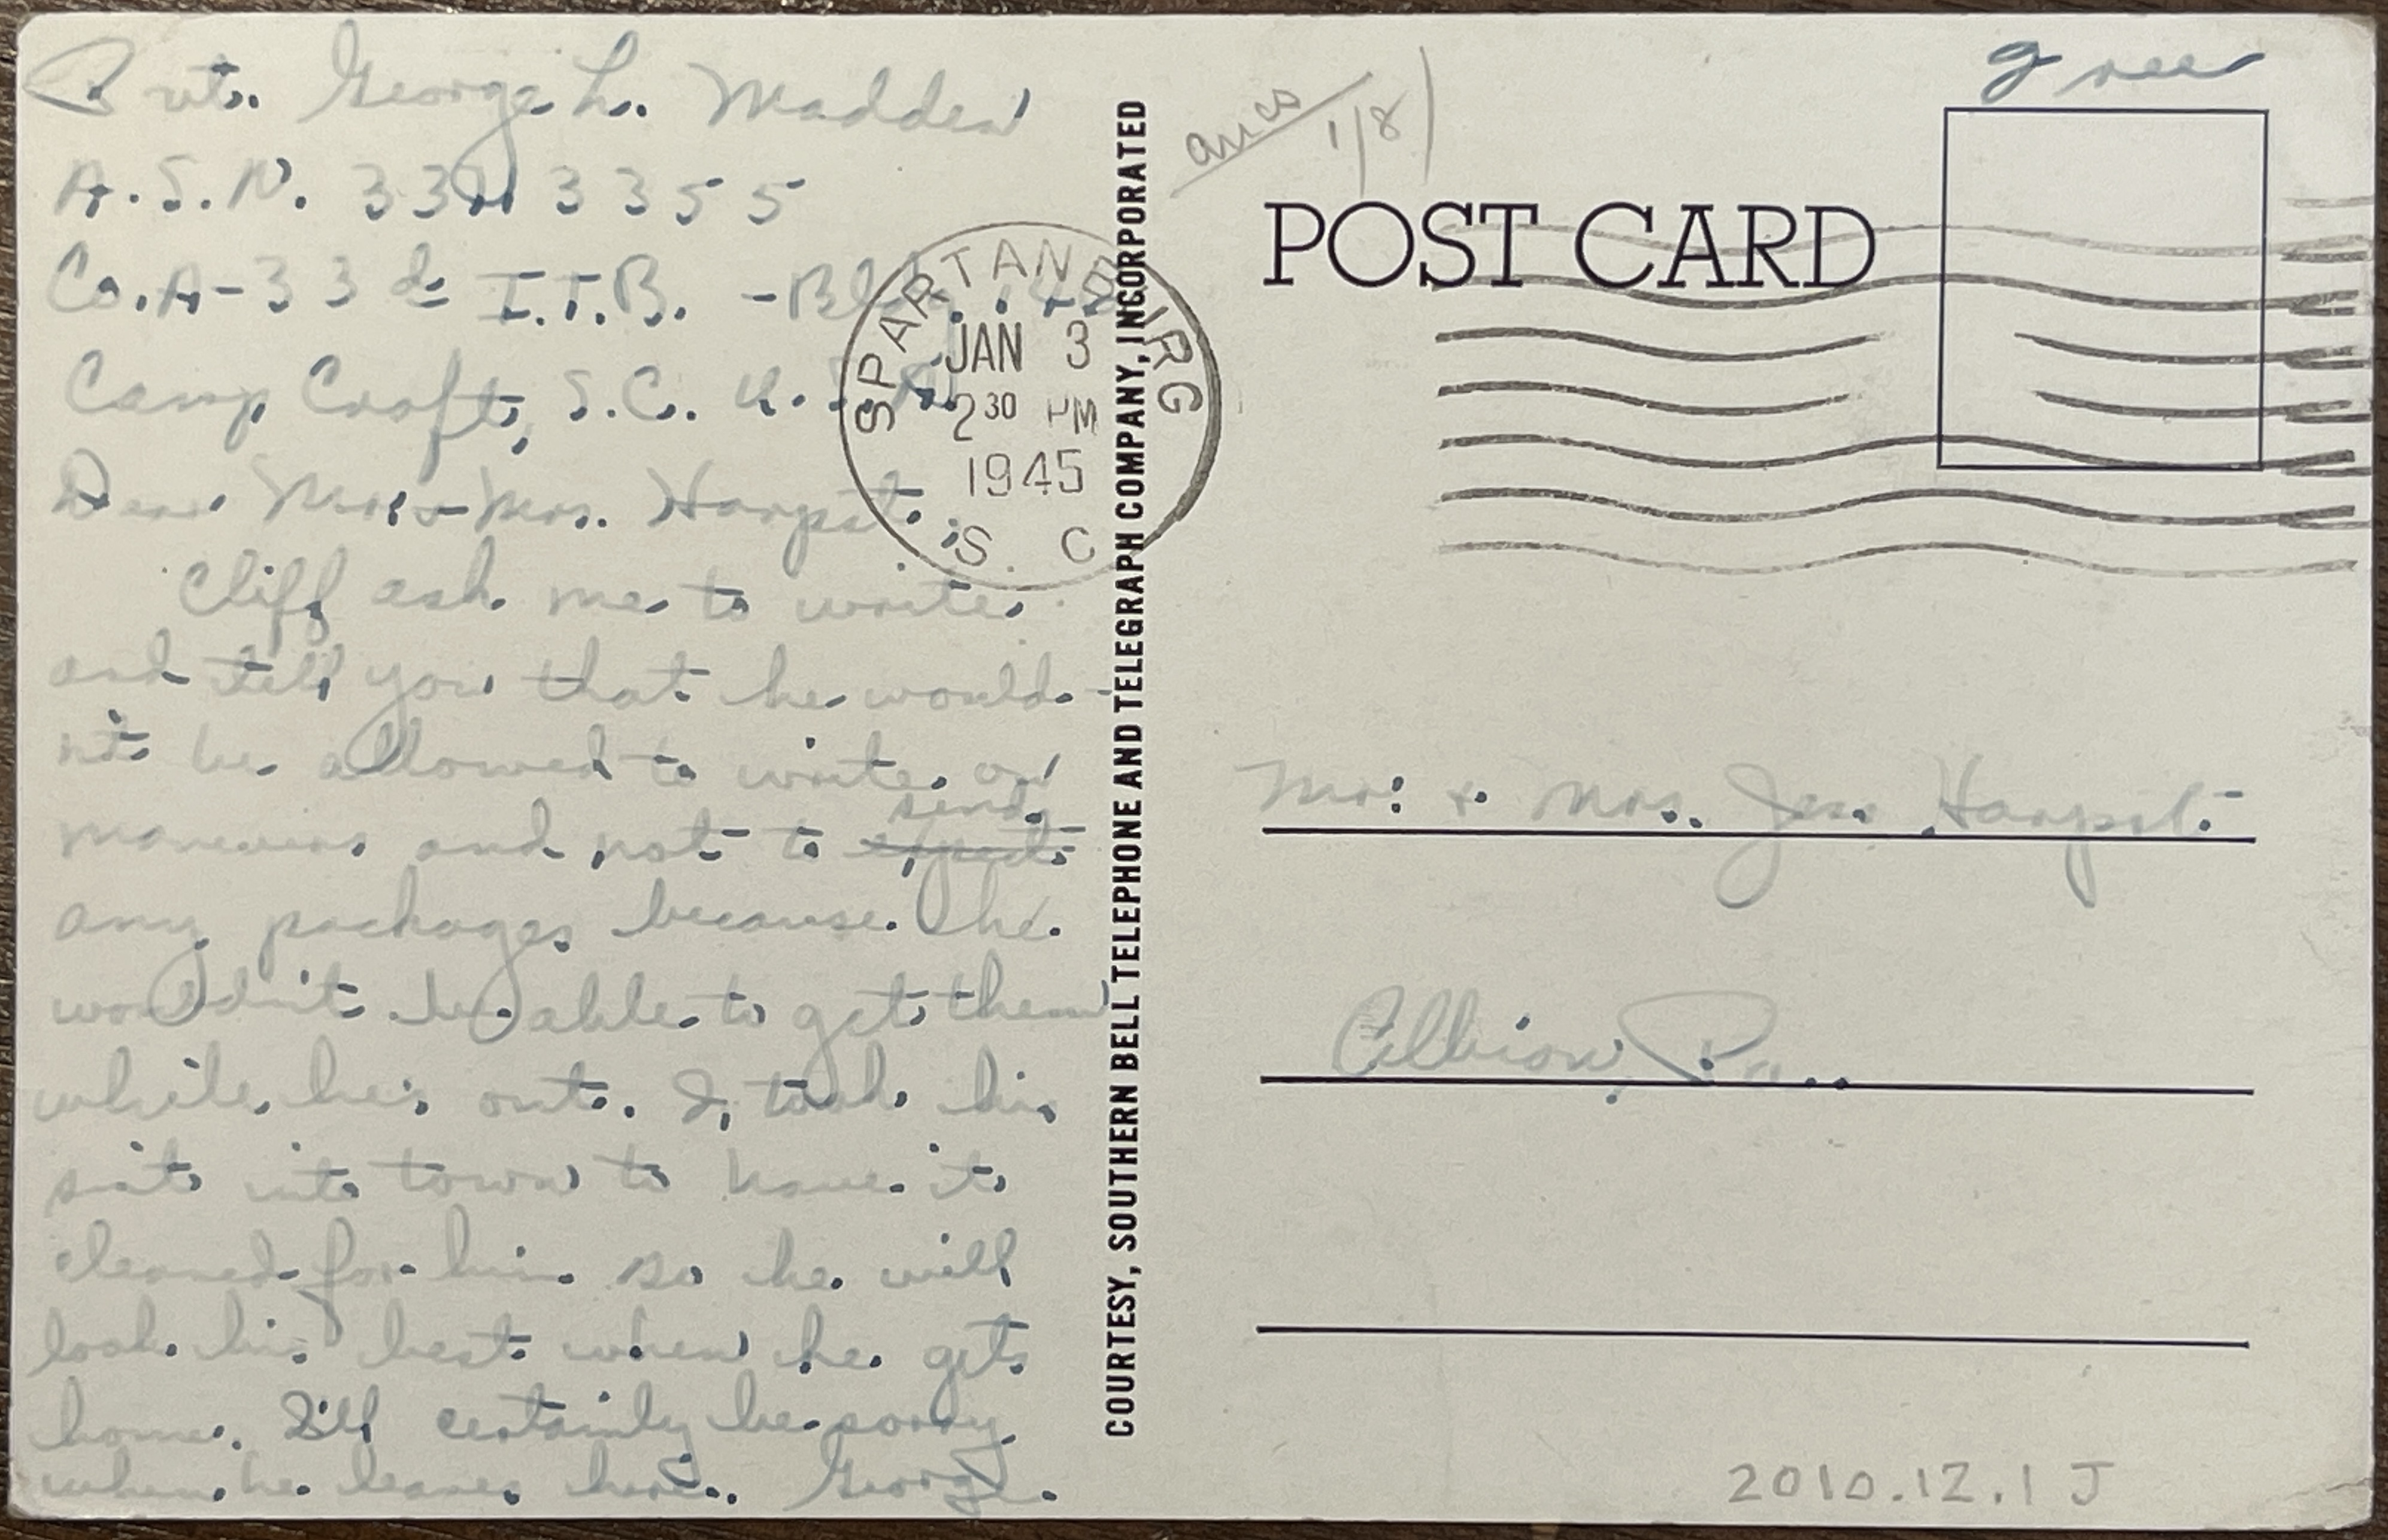 Pvt. George L. Madden
A.S.N. 33
Co. A-33d I.T.B. -
Camp Croft, S.C. U.S.A.
Dear Mr. & Mrs. Harpst:
Cliff ask me to write
and tell you that he would-
n't be allowed to write on
send
maneuvers and not to expect
any packages because he
wouldn't be able to get them
while he's out. I took his
suit into town to have it
cleaned for him so he will
look his best when he gets
home. I'll certainly be sorry
when he leaves here. George.
SPARTANBURG
JAN 3
2 30 PM
1945
S C
COURTESY, SOUTHERN BELL TELEPHONE AND TELEGRAPH COMPANY, INCORPORATED
1/8
Free
POST CARD
Mr. & Mrs. Jess Harpst
Albion, Pa.
2010.12.1 J